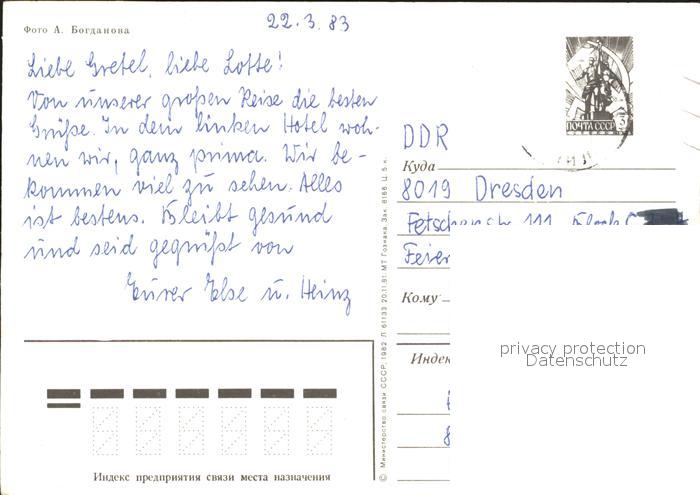 Фото А. Богданова
22.3.83
Liebe Gretel, liebe Lotte!
Von unserer großen Reise die besten
Grüße. In dem linken Hotel woh-
nen wir, ganz prima. Wir be-
kommen viel zu sehen. Alles
ist bestens. Bleibt gesund
und seid gegrüßt von
Eurer Else u. Heinz
Индекс предприятия связи места назначения
© Министерство связи СССР, 1982 Л 61133 20.11.81. МТ Гознака. Зак. 8166. Ц. 5 к.
ПОЧТА СССР 3
DDR
Куда
8019 Dresden
111
Feier
Кому
Индек
privacy protection
Datenschutz